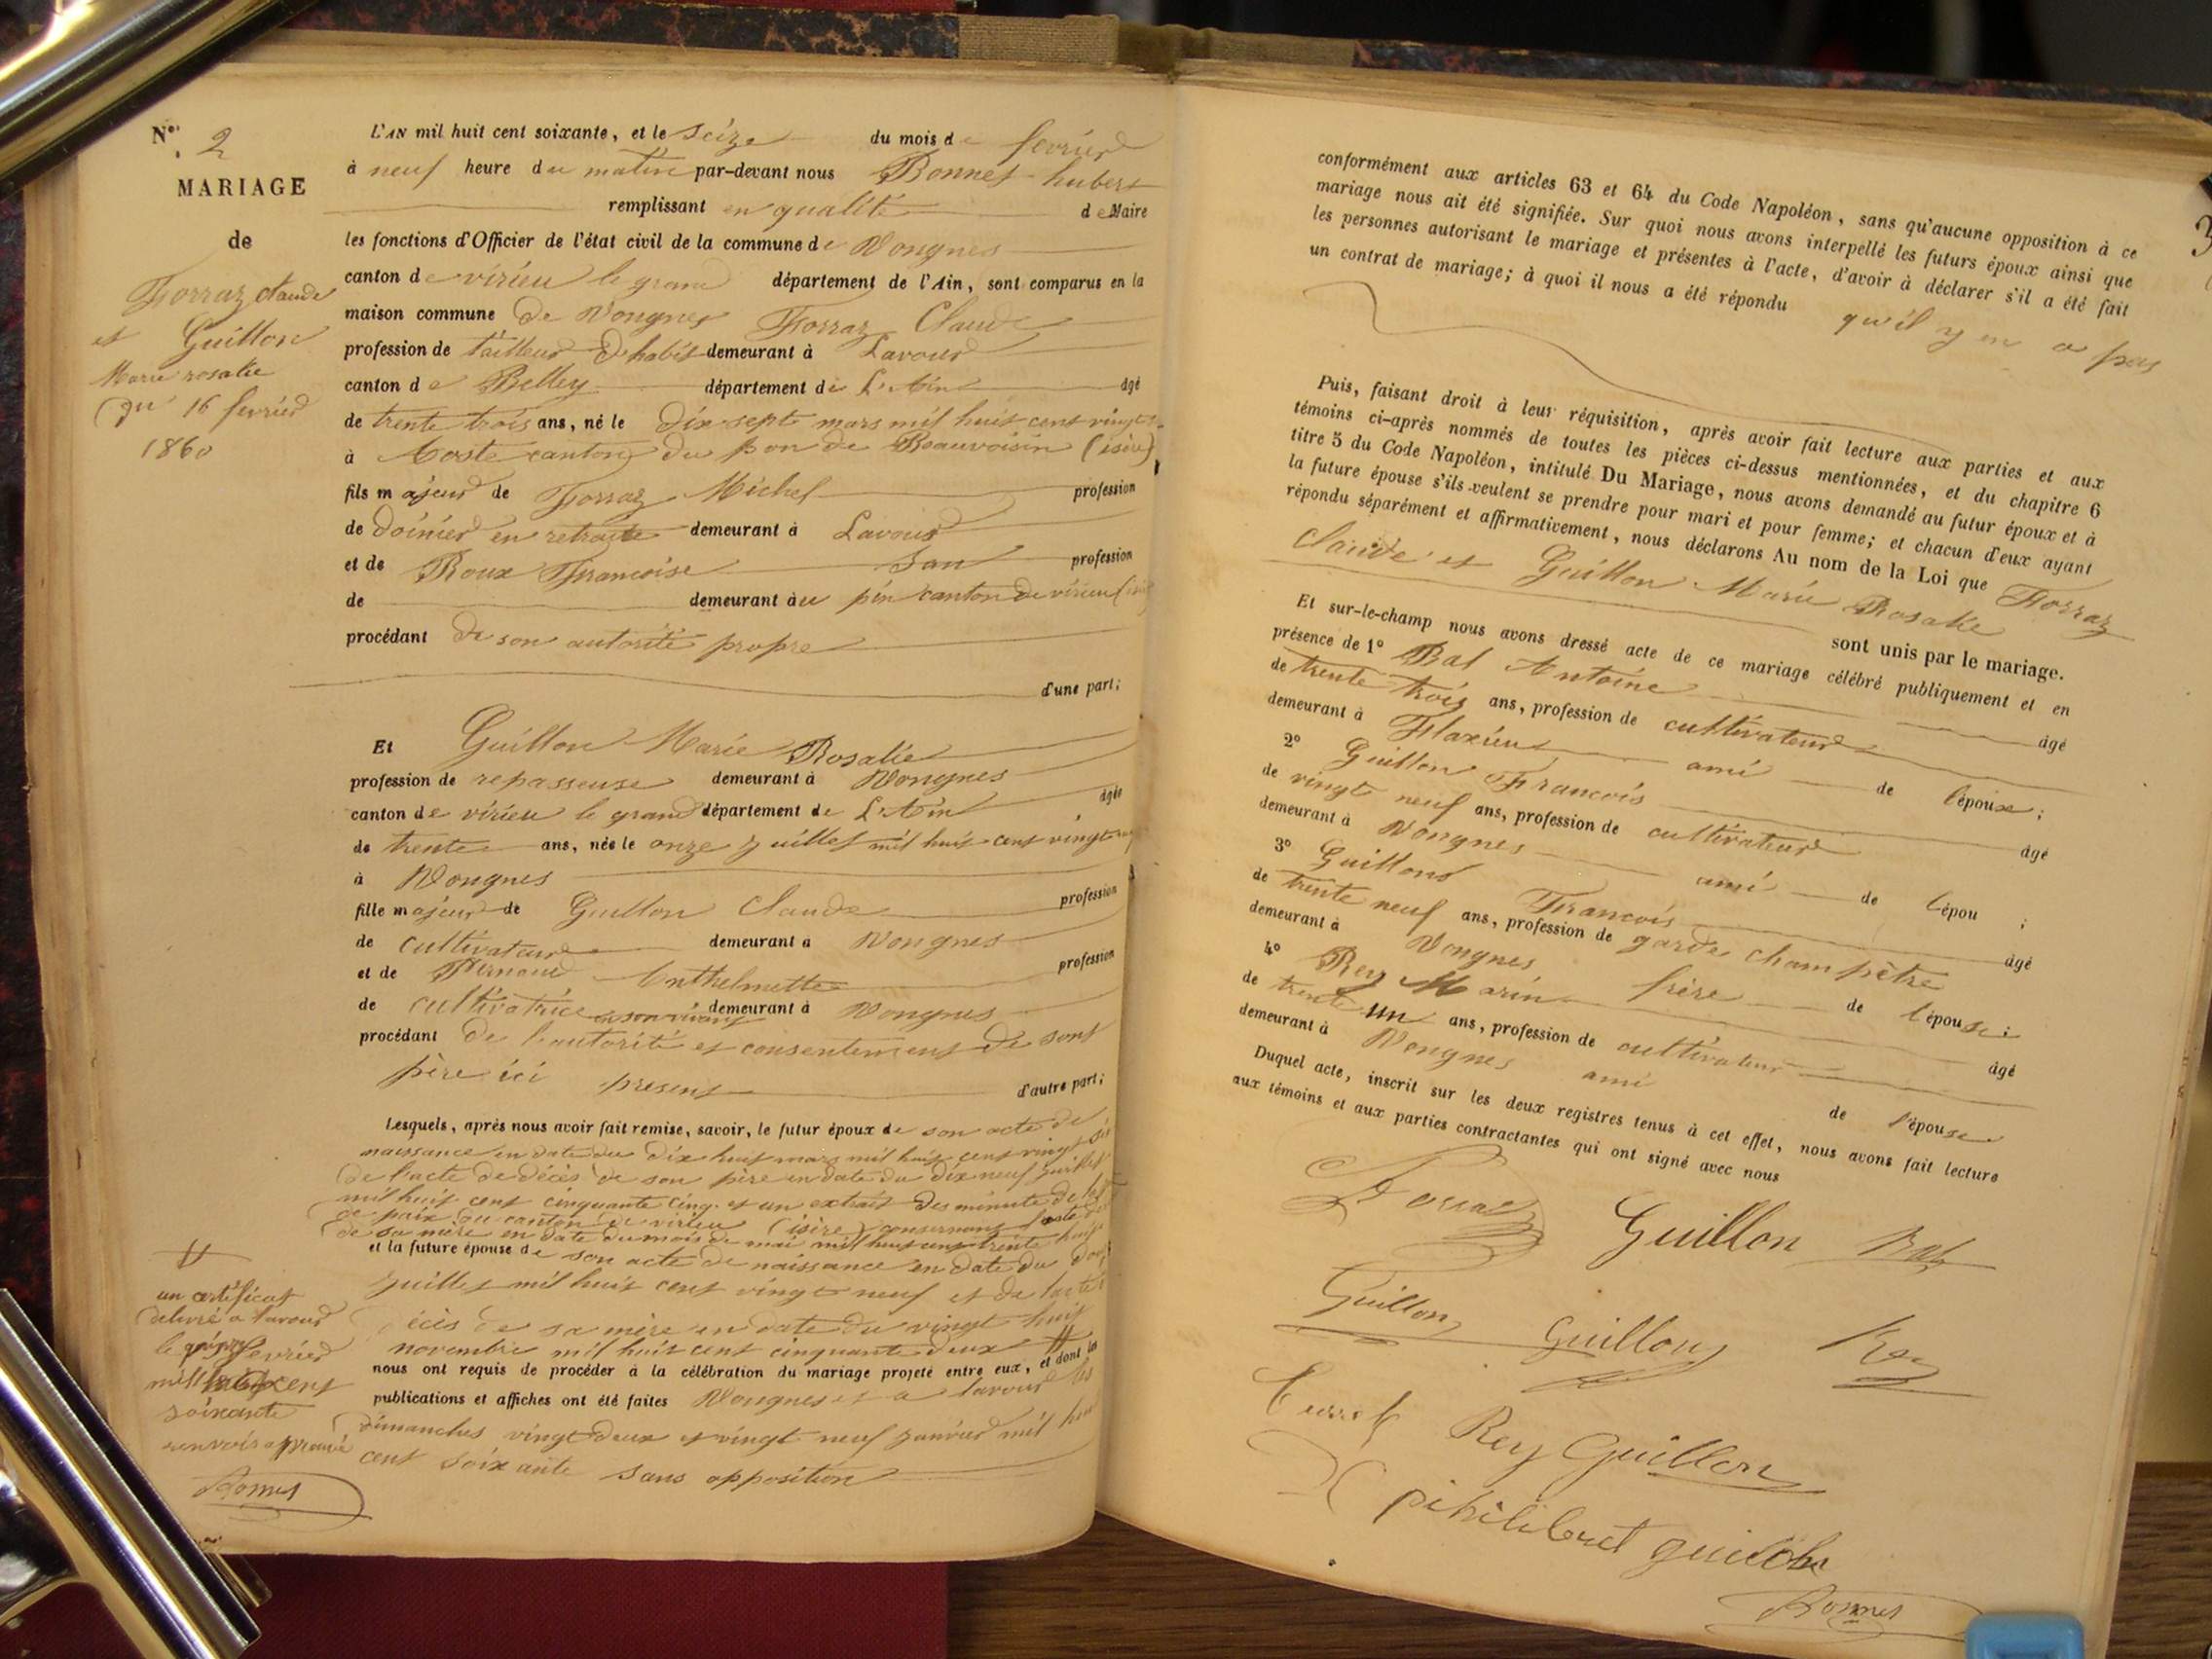 N° 2
MARIAGE
de
Forraz Claude
et Guillon
Marie rosalie
du 16 fevrier
1860
L'AN mil huit cent soixante, et le Seize du mois de fevrier
à neuf heure du matin par-devant nous Bonnet hubert
remplissant en qualité de Maire
les fonctions d'Officier de l'état civil de la commune de Vongnes
canton de virieu le grand département de l'Ain, sont comparus en la
maison commune de Vongnes Forraz Claude
profession de tailleur d'habit demeurant à Lavour
canton de Belley département de L'Ain âgé
de trente trois ans, né le dix sept mars mil huit cent vingt
à Aoste canton du pon de Beauvoisin (isère)
fils majeur de Forraz Michel profession
de doinier en retraite demeurant à Lavour
et de Roux Francoise San profession
de demeurant au pin canton de virieu
procédant de son autorité propre
d'une part;
Et Guillon Marie Rosalie
profession de repasseuse demeurant à Vongnes
canton de virieu le grand département de L'Ain âgée
de trente ans, née le onze juillet mil huit cent vingt
à Vongnes
fille majeur de Guillon Claude profession
de cultivateur demeurant à Vongnes
et de Pernoud Anthelmette profession
de cultivatrice en son vivant demeurant à Vongnes
procédant de l'autorité et consentement de sont
père ici present d'autre part;
Lesquels, après nous avoir fait remise, savoir, le futur époux de son acte de
naissance en date du dix huit mars mil huit cent vingt six
de l'acte de décès de son père en date du dix neuf juillet
mil huit cent cinquante cinq et un extrait des minute de la
de paix du canton de virieu (isère) consernant l'acte
de sa mère en date du mois de mai mil huit cent trente huit
et la future épouse de son acte de naissance en date du
juillet mil huit cent vingt neuf et de l'acte
décès de sa mère en date du vingt huit
novembre mil huit cent cinquante deux #
nous ont requis de procéder à la célébration du mariage projeté entre eux, et dont les
publications et affiches ont été faites Vongnes et a lavour les
dimanches vingt deux et vingt neuf janvier mil huit
cent soixante sans opposition
#
un certificat
delivré a lavour
le fevrier
mil cent
soixante
renvois approuvé
Bonnet
conformément aux articles 63 et 64 du Code Napoléon, sans qu'aucune opposition à ce
mariage nous ait été signifiée. Sur quoi nous avons interpellé les futurs époux ainsi que
les personnes autorisant le mariage et présentes à l'acte, d'avoir à déclarer s'il a été fait
un contrat de mariage; à quoi il nous a été répondu qu'il y en a pas
Puis, faisant droit à leur réquisition, après avoir fait lecture aux parties et aux
témoins ci-après nommés de toutes les pièces ci-dessus mentionnées, et du chapitre 6
titre 5 du Code Napoléon, intitulé Du Mariage, nous avons demandé au futur époux et à
la future épouse s'ils veulent se prendre pour mari et pour femme; et chacun d'eux ayant
répondu séparément et affirmativement, nous déclarons Au nom de la Loi que Forraz
Claude et Guillon Marie Rosalie
sont unis par le mariage.
Et sur-le-champ nous avons dressé acte de ce mariage célébré publiquement et en
présence de 1° Bal Antoine âgé
de trente trois ans, profession de cultivateur
demeurant à Flaxieu ami de l'épouse;
2° Guillon Francois âgé
de vingt neuf ans, profession de cultivateur
demeurant à Vongnes ami de l'épou ;
3° Guillond Francois âgé
de trente neuf ans, profession de garde champêtre
demeurant à Vongnes frère de l'épouse;
4° Rey Marin âgé
de trente un ans, profession de cultivateur
demeurant à Vongnes ami de l'épouse
Duquel acte, inscrit sur les deux registres tenus à cet effet, nous avons fait lecture
aux témoins et aux parties contractantes qui ont signé avec nous
Guillon Bal
Guillon Guillon Rey
Rey Guillon
Bonnet